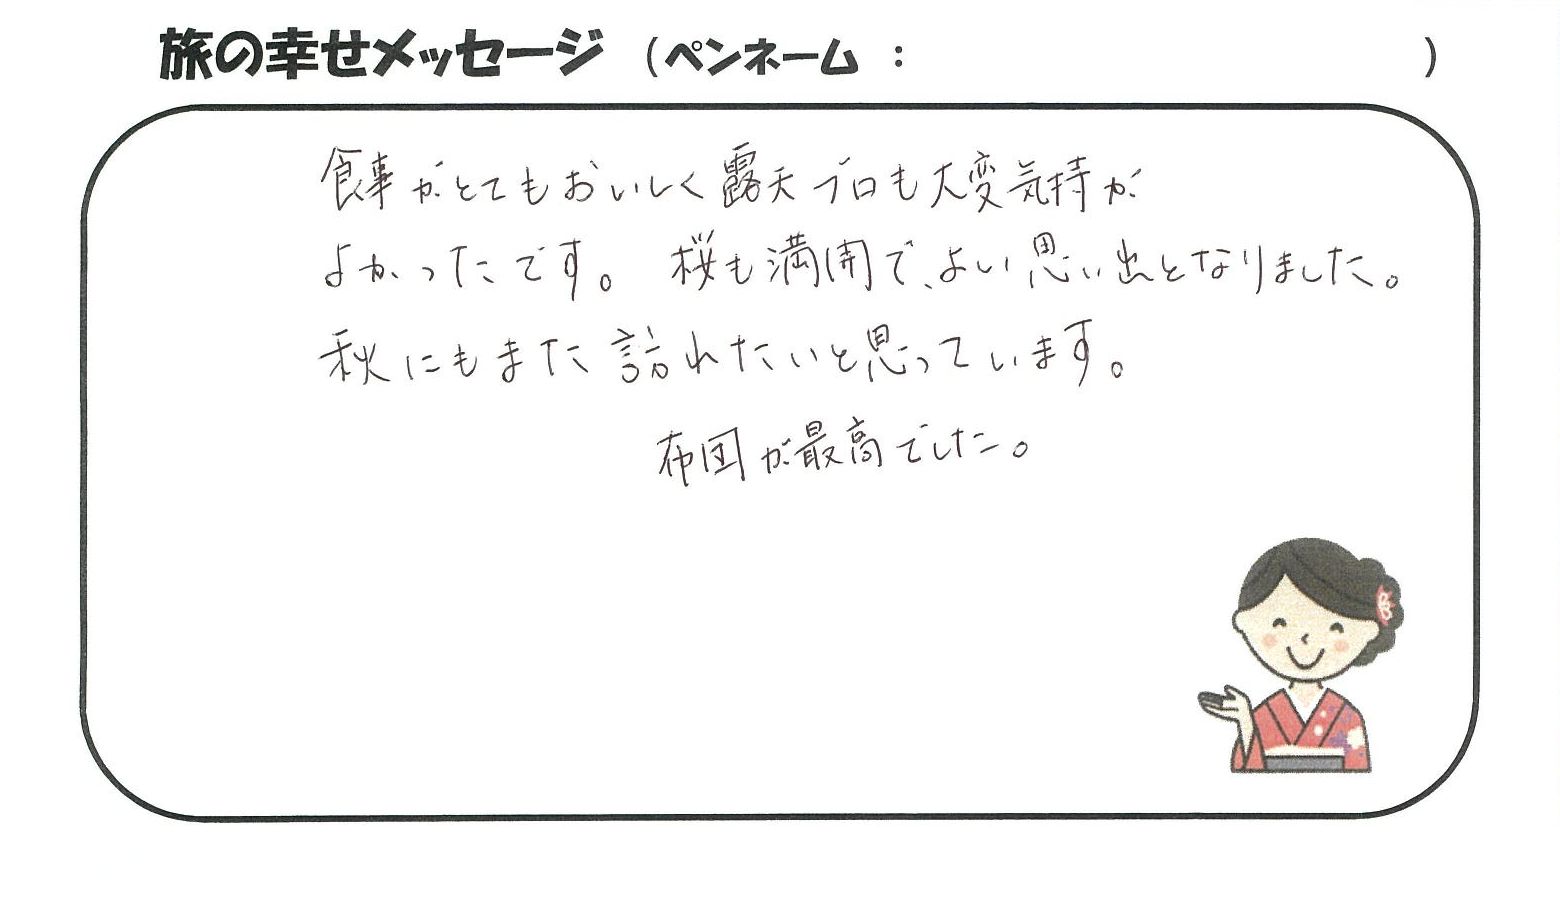 旅の幸せメッセージ （ペンネーム ： ）
食事がとてもおいしく露天ブロも大変気持が
よかったです。 桜も満開で、よい思い出となりました。
秋にもまた訪れたいと思っています。
布団が最高でした。